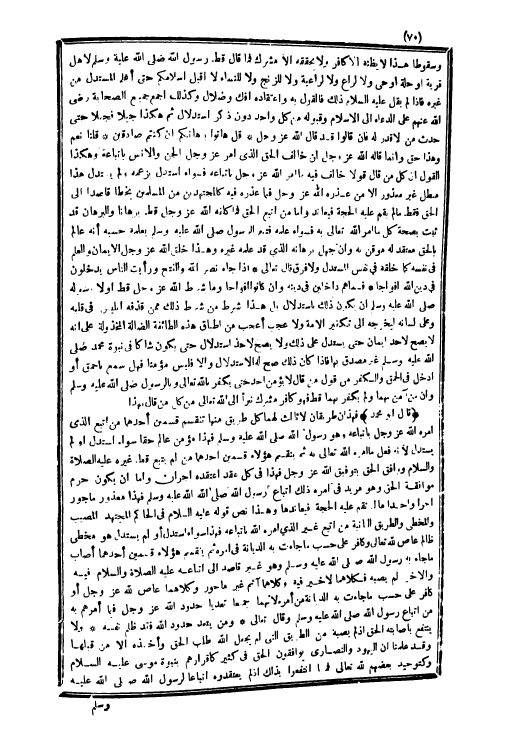 (٧٠)
وسقوطا هذا لا يظنه الا كافر ولا يحققه الا مشرك فما قال قط رسول الله صلى الله عليه وسلم لاهل
قرية او حلة او حي ولا لراع ولا لراعية ولا للزنج ولا للنساء لا اقبل اسلامكم حتى أعلم المستدل من
غيره فاذا لم يقل عليه السلام ذلك فالقول به واعتقاده افك وضلال وكذلك اجمع جميع الصحابة رضى
الله عنهم على الدعاء الى الاسلام وقبوله من كل واحد دون ذكر استدلال ثم هكذا جيلا فجيلا حتى
حدث من لا قدر له فان قالوا قد قال الله عز وجل * قل هاتوا برهانكم ان كنتم صادقين * قلنا نعم
وهذا حق وانما قاله الله عز وجل لمن خالف الحق الذى امر عز وجل الجن والانس باتباعه وهكذا
القول ان كل من قال قولا خالف فيه ما امر الله عز وجل باتباعه فسواء استدل بزعمه او لم يستدل هذا
مبطل غير معذور الا من عذره الله عز وجل فيما عذره فيه كالمجتهد من المسلمين يخطئ قاصدا الى
الحق فقط ما لم يقم عليه الحجة فيعاند واما من اتبع الحق فما كلفه الله عز وجل قط برهانا والبرهان قد
ثبت بصحة كل ما امر الله تعالى به فسواء علمه متبع الرسول صلى الله عليه وسلم بعلمه حسبه أنه عالم
بالحق معتقد له موقن به وان جهل برهانه الذى قد علمه غيره وهذا خلق الله عز وجل الايمان والعلم
فى نفسه كما خلقه فى نفس المستدل ولا فرق قال تعالى * اذا جاء نصر الله والفتح ورأيت الناس يدخلون
فى دين الله افواجا * فسماهم داخلين فى دينه وان كانوا افواجا وما شرط الله عز وجل قط ولا رسوله
صلى الله عليه وسلم ان يكون ذلك باستدلال بل هذا شرط من شرط ذلك ممن قذفه ابليس فى قلبه
وعلى لسانه ليخرجه الى تكفير الامة ولا عجب أعجب من اطباق هذه الطائفة الضالة المخذولة على انه
لا يصح لاحد ايمان حتى يستدل على ذلك ولا يصح لاحد استدلال حتى يكون شاكا فى نبوة محمد صلى
الله عليه وسلم غير مصدق بها فاذا كان ذلك صح له الاستدلال والا فليس مؤمنا فهل سمع باحمق أو
ادخل فى الحق والكفر من قول من قال لا يؤمن احد حتى يكفر بالله تعالى وبالرسول صلى الله عليه وسلم
وان من آمن بهما ولم يكفر بهما قط فهو كافر مشرك نبرأ الى الله تعالى من كل من قال بهذا
(قال ابو محمد) فهذان طريقان لا ثالث لهما كل طريق منها تنقسم قسمين أحدهما من اتبع الذى
امره الله عز وجل باتباعه وهو رسول الله صلى الله عليه وسلم فهذا مؤمن عالم حقا سواء استدل او لم
يستدل لانه فعل ما امره الله تعالى به ثم ينقسم هؤلاء قسمين احدهما من لم يتبع قط غيره عليه الصلاة
والسلام ووافق الحق بتوفيق الله عز وجل فهذا فى كل عقد اعتقده اجران واما ان يكون حرم
موافقة الحق وهو مريد فى امره ذلك اتباع رسول الله صلى الله عليه وسلم فهذا معذور ماجور
اجرا واحدا ما لم تقم عليه الحجة فيعاندها وهذا نص قوله عليه السلام فى الحاكم المجتهد المصيب
والمخطى والطريق الثانية من اتبع غير الذى امره الله باتباعه فهذا سواء استدل أو لم يستدل هو مخطى
ظالم عاص لله تعالى وكافر على حسب ما جاءت به الديانة فى امره ثم ينقسم هؤلاء قسمين احدهما أصاب
ما جاء به رسول الله صلى الله عليه وسلم وهو غير قاصد الى اتباعه عليه الصلاة والسلام فيه
والآخر لم يصبه فكلاهما لا خير فيه وكلاهما آثم غير ماجور وكلاهما عاص لله عز وجل أو
كافر على حسب ما جاءت به الديانة من أمره لانهما جميعا تعديا حدود الله عز وجل فيما أمرهم به
من اتباع رسول الله صلى الله عليه وسلم وقال تعالى * ومن يتعد حدود الله فقد ظلم نفسه * ولا
ينتفع باصابته الحق اذ لم يصبه من الطريق التى لم يجعل الله طلب الحق وأخذه الا من قبلها
وقد علمنا ان اليهود والنصارى يوافقون الحق فى كثير كاقرارهم بنبوة موسى عليه السلام
وكتوحيد بعضهم لله تعالى فما انتفعوا بذلك اذ لم يعتقدوه اتباعا لرسول الله صلى الله عليه
وسلم